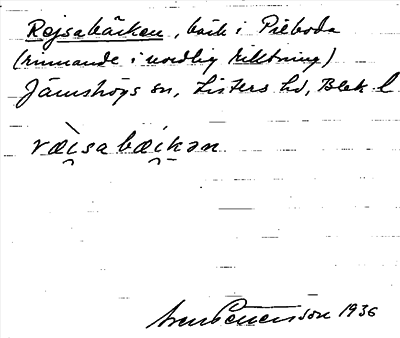 Rejsabäcken, bäck i Pieboda
(rinnande i nordlig riktning)
Jämshögs sn, Listers hd, Blek. l
ræi̯sabæi̯kən
Sven Benson 1936